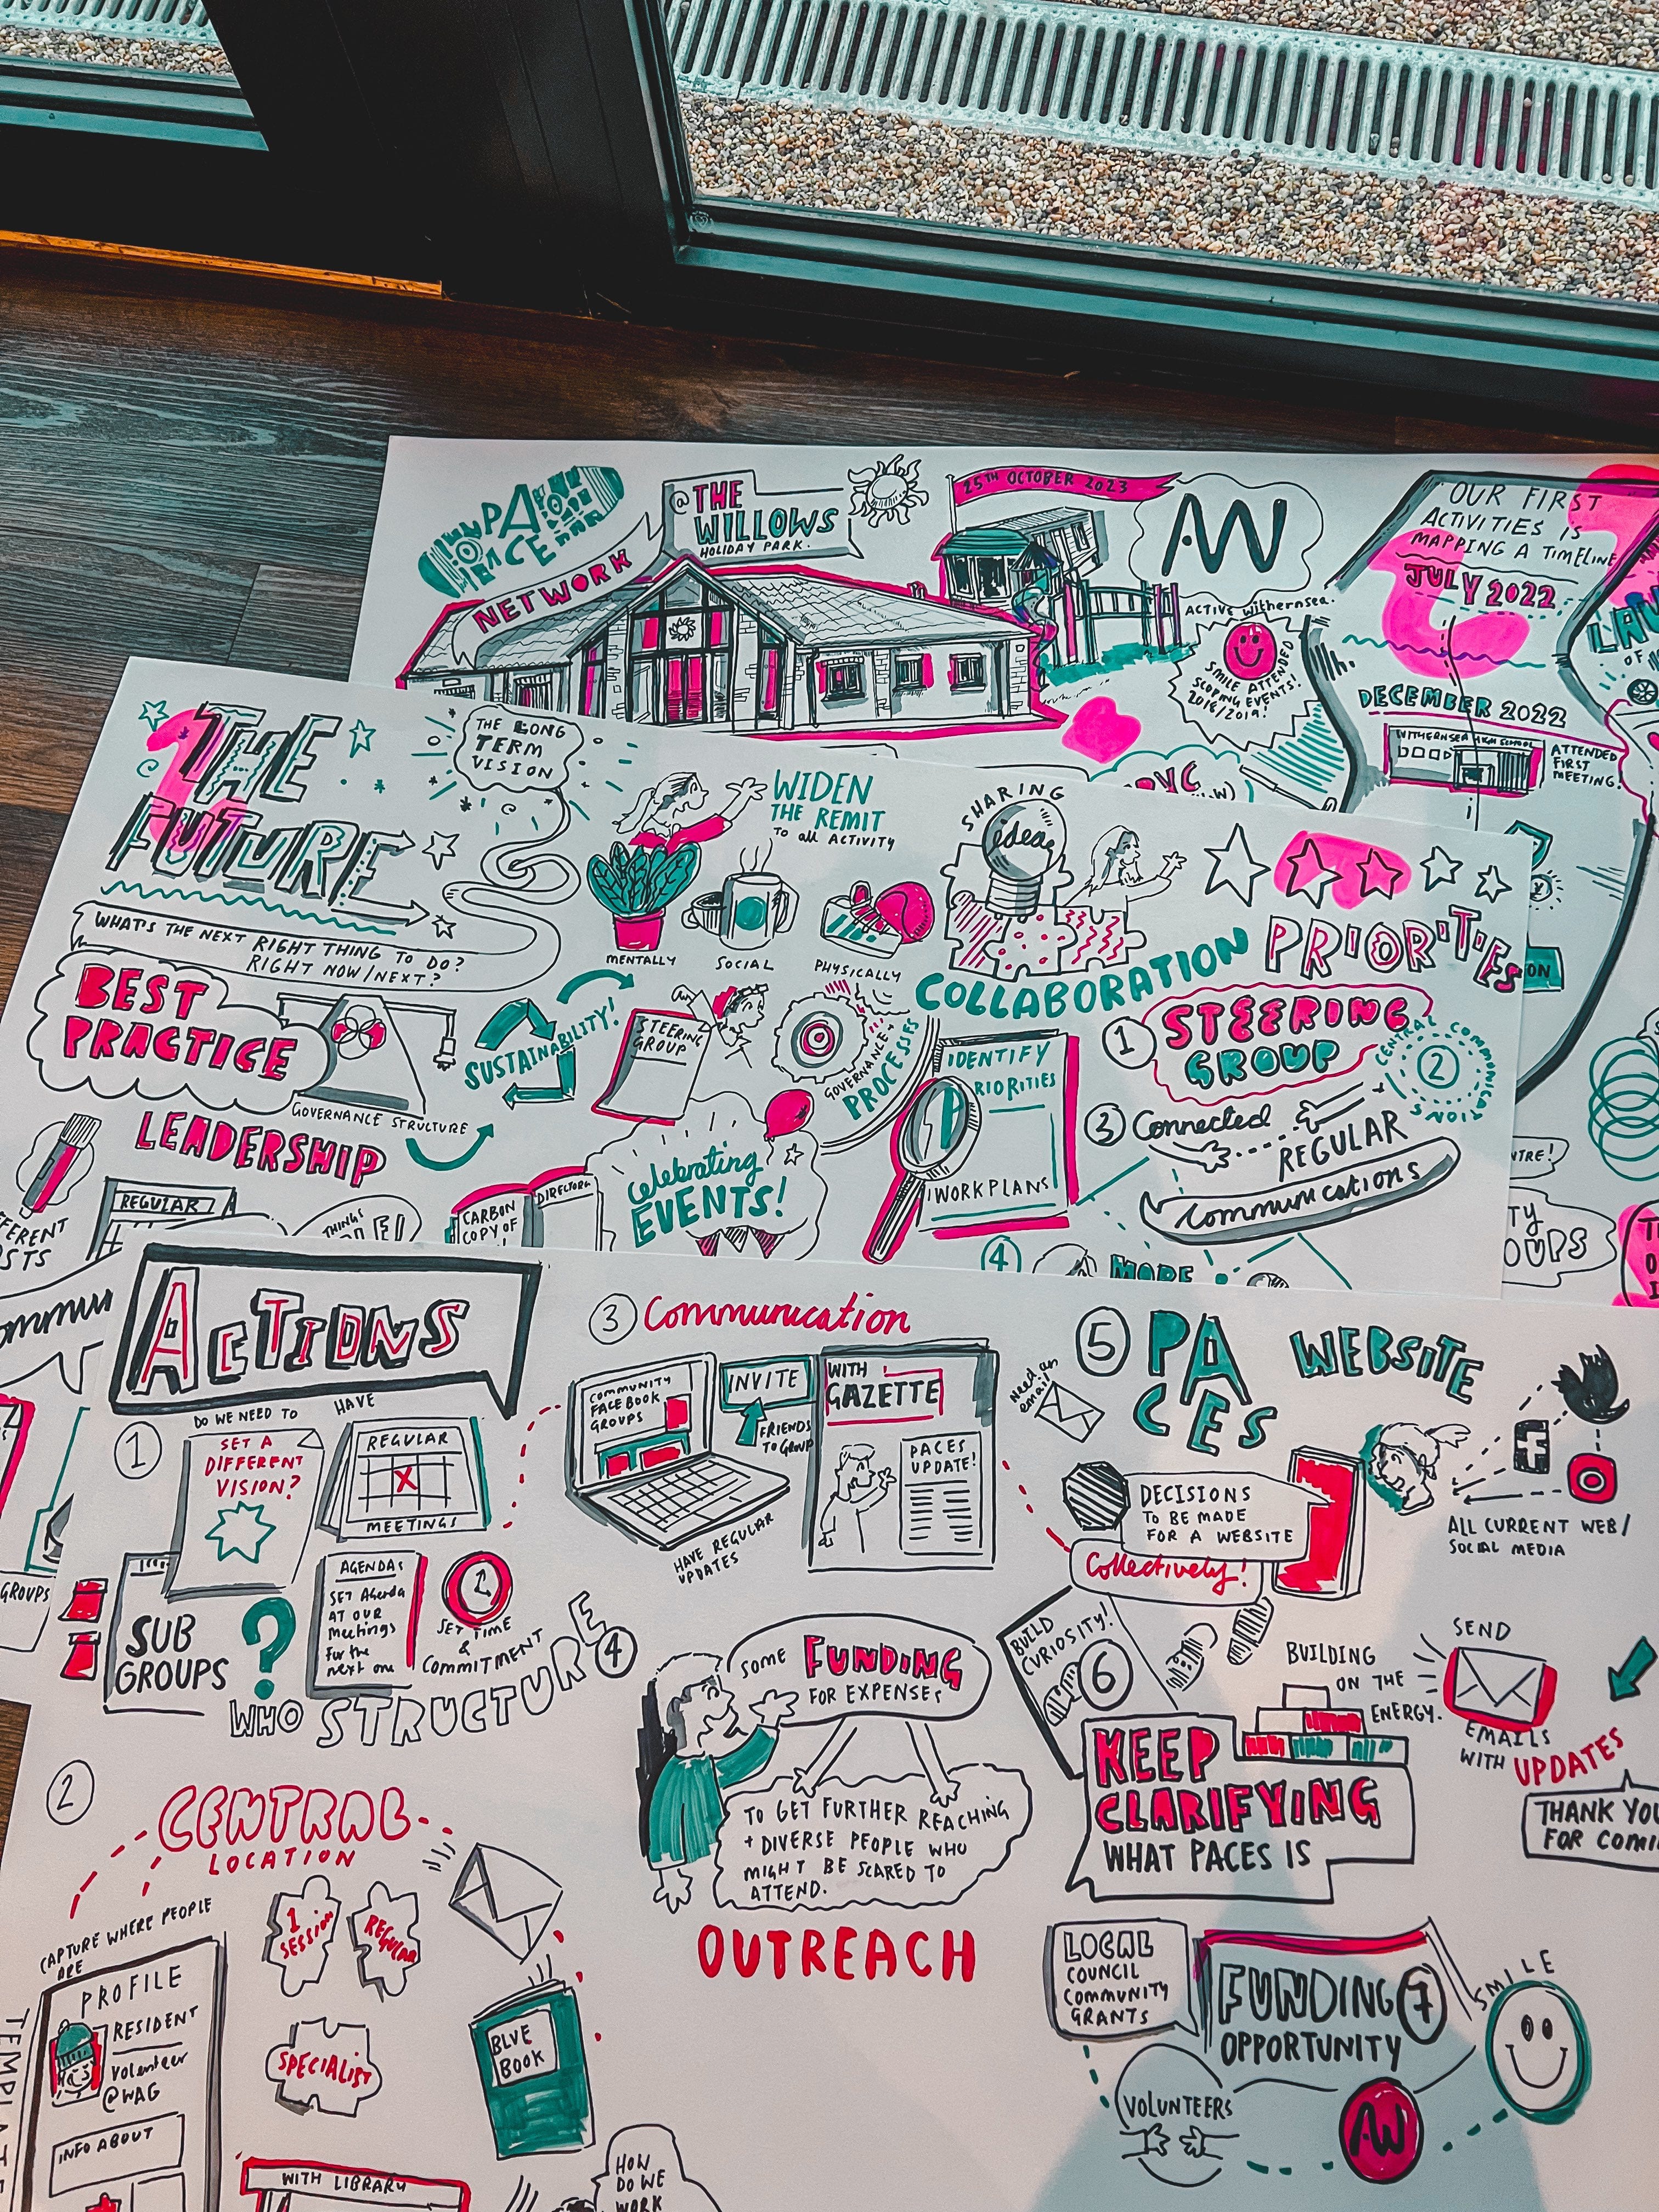 PA
CE
NETWORK
@ THE
WILLOWS
HOLIDAY PARK.
25TH OCTOBER 2023
AW
ACTIVE WITHERNSEA.
SMILE ATTENDED
SCOPING EVENTS!
2018/2019!
OUR FIRST
ACTIVITIES IS
MAPPING A TIMELINE
JULY 2022
DECEMBER 2022
WITHERNSEA HIGH SCHOOL
ATTENDED
FIRST
MEETING!
OF
THE
FUTURE
THE LONG
TERM
VISION
WHAT'S THE NEXT RIGHT THING TO DO?
RIGHT NOW/NEXT?
WIDEN
THE REMIT
TO all ACTIVITY
MENTALLY
SOCIAL
PHYSICALLY
SHARING
idea
COLLABORATION
PRIORITIES
BEST
PRACTICE
GOVERNANCE STRUCTURE
SUSTAINABILITY!
STEERING
GROUP
GOVERNANCE+
PROCESSES
LEADERSHIP
REGULAR
THINGS
CARBON
COPY OF
DIRECTORY
Celebrating
EVENTS!
IDENTIFY
PRIORITIES
WORKPLANS
1 STEERING
GROUP
2
CENTRAL COMMUNICATIONS
3 Connected
REGULAR
Communications
4
MORE
ACTIONS
1
DO WE NEED TO HAVE
SET A
DIFFERENT
VISION?
REGULAR
X
MEETINGS
SUB
GROUPS
?
AGENDAS
SET Agenda
AT OUR
Meetings
for the
next one
SET TIME
&
COMMITMENT
WHO STRUCTURE
GROUPS
2
CENTRAL
LOCATION
CAPTURE WHERE PEOPLE
ARE
PROFILE
RESIDENT
Volunteer
@WAG
INFO ABOUT
TEMPLATE
1
SESSION
REGULAR
SPECIALIST
BLUE
BOOK
WITH LIBRARY
HOW
DO WE
WORK
3 Communication
COMMUNITY
FACEBOOK
GROUPS
INVITE
FRIENDS
TO GROUP
HAVE REGULAR
UPDATES
WITH
GAZETTE
PACES
UPDATE!
4
SOME FUNDING
FOR EXPENSES
TO GET FURTHER REACHING
+ DIVERSE PEOPLE WHO
MIGHT BE SCARED TO
ATTEND.
OUTREACH
5 PA
CES
WEBSITE
Need an
email
DECISIONS
TO BE MADE
FOR A WEBSITE
Collectively!
f
ALL CURRENT WEB/
SOCIAL MEDIA
BUILD
CURIOSITY!
6
KEEP
CLARIFYING
WHAT PACES IS
BUILDING
ON THE
ENERGY.
SEND
EMAILS
WITH UPDATES
THANK YOU
FOR
LOCAL
COUNCIL
COMMUNITY
GRANTS
FUNDING 7
OPPORTUNITY
SMILE
VOLUNTEERS
AW